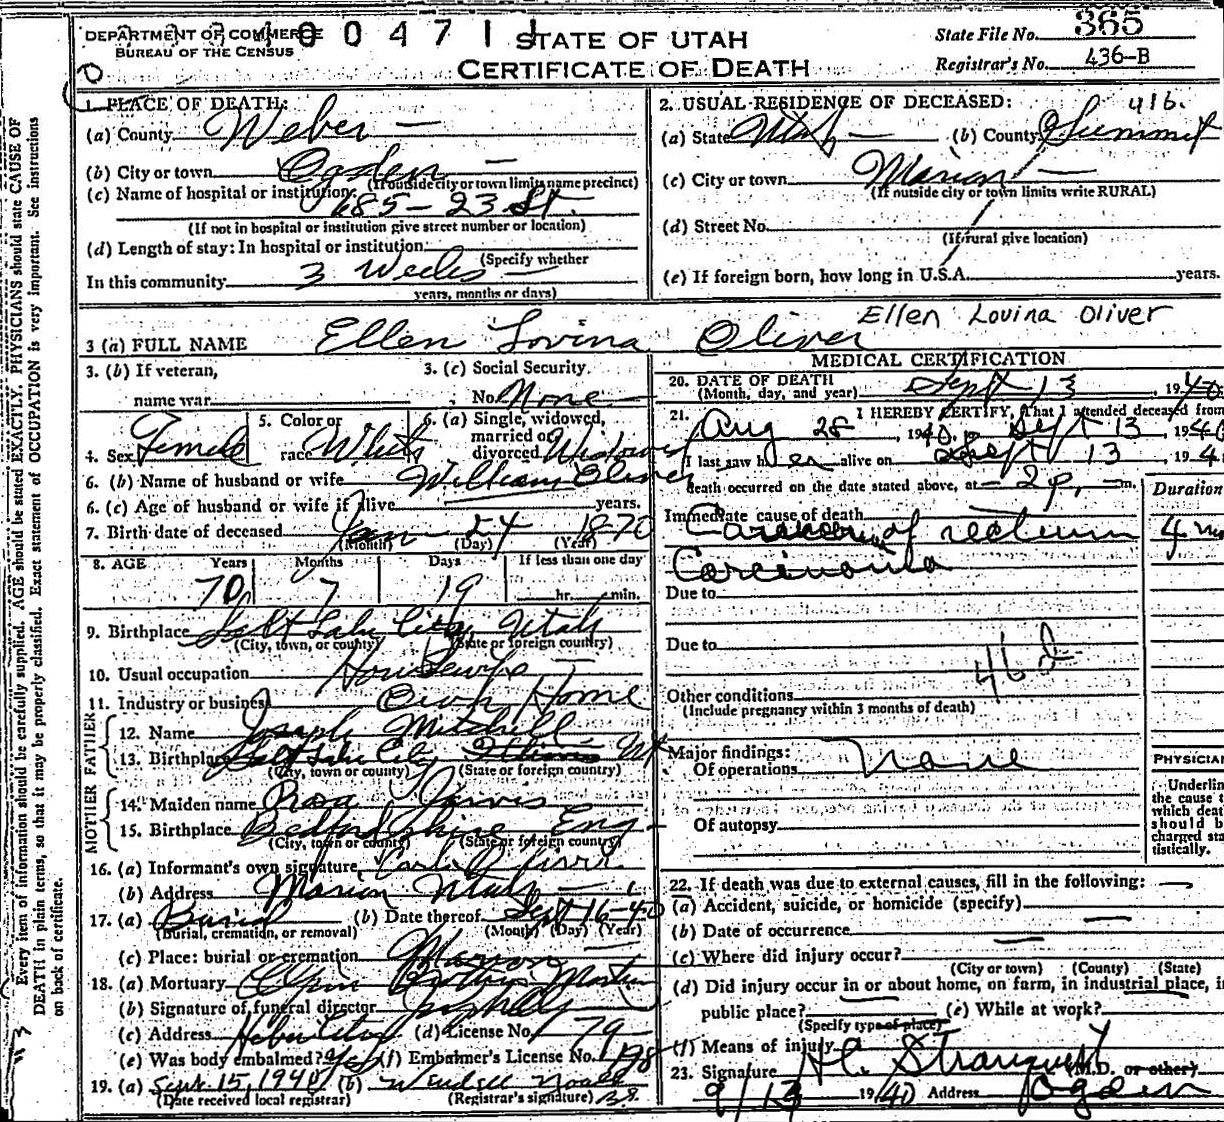 DEPARTMENT OF COMMERCE
BUREAU OF THE CENSUS
0 0 4 7 1 1
STATE OF UTAH
CERTIFICATE OF DEATH
State File No. 365
Registrar's No. 436-B
1. PLACE OF DEATH:
(a) County Weber —
(b) City or town Ogden —
(If outside city or town limits name precinct)
(c) Name of hospital or institution:
685 – 23 St.
(If not in hospital or institution give street number or location)
(d) Length of stay: In hospital or institution
(Specify whether
In this community 3 Weeks —
years, months or days)
2. USUAL RESIDENCE OF DECEASED: 416.
(a) State Utah — (b) County Summit
(c) City or town Marion —
(If outside city or town limits write RURAL)
(d) Street No.
(If rural give location)
(e) If foreign born, how long in U.S.A. years.
3 (a) FULL NAME Ellen Lovina Oliver
Ellen Lovina Oliver
3. (b) If veteran,
name war
3. (c) Social Security
No. None
4. Sex Female
5. Color or
race White
6. (a) Single, widowed,
married or
divorced Widowed
6. (b) Name of husband or wife William Oliver
6. (c) Age of husband or wife if alive years.
7. Birth date of deceased Jan 24 1870
(Month) (Day) (Year)
8. AGE Years Months Days If less than one day
70 7 19 hr. min.
9. Birthplace Salt Lake City, Utah
(City, town, or county) (State or foreign country)
10. Usual occupation Housewife —
11. Industry or business Own Home
FATHER
12. Name Joseph Mitchell
13. Birthplace Salt Lake City Illinois Ut
(City, town or county) (State or foreign country)
MOTHER
14. Maiden name Rosa Jarvis
15. Birthplace Bedfordshire Eng-
(City, town or county) (State or foreign country)
16. (a) Informant's own signature
(b) Address Marion Utah —
17. (a) Burial (b) Date thereof Sept 16-40
(Burial, cremation, or removal) (Month) (Day) (Year)
(c) Place: burial or cremation Marion
18. (a) Mortuary
(b) Signature of funeral director
(c) Address Heber City (d) License No. 79
(e) Was body embalmed? Yes (f) Embalmer's License No. 198
19. (a) Sept. 15, 1940 (b) Wendell
(Date received local registrar) (Registrar's signature)
MEDICAL CERTIFICATION
20. DATE OF DEATH
(Month, day, and year) Sept 13 , 1940
21. I HEREBY CERTIFY, That I attended deceased from
Aug 28 , 1940, Sept 13 , 1940
I last saw her alive on Sept 13 , 194
death occurred on the date stated above, at – 2 p. –m.
Duration
Immediate cause of death
of rectum 4 mo
Carcinoma
Due to
Due to
46 d
Other conditions
(Include pregnancy within 3 months of death)
Major findings:
Of operations None
Of autopsy
PHYSICIAN
Underlin
the cause t
which deat
should b
charged sta
tistically.
22. If death was due to external causes, fill in the following: —
(a) Accident, suicide, or homicide (specify)
(b) Date of occurrence
(c) Where did injury occur?
(City or town) (County) (State)
(d) Did injury occur in or about home, on farm, in industrial place, i
public place? (e) While at work?
(Specify type of place)
(f) Means of injury
23. Signature H.C. Stranquist (M.D. or other)
9/13 1940 Address Ogden
Every item of information should be carefully supplied. AGE should be stated EXACTLY. PHYSICIANS should state CAUSE OF
DEATH in plain terms, so that it may be properly classified. Exact statement of OCCUPATION is very important. See instructions
on back of certificate.